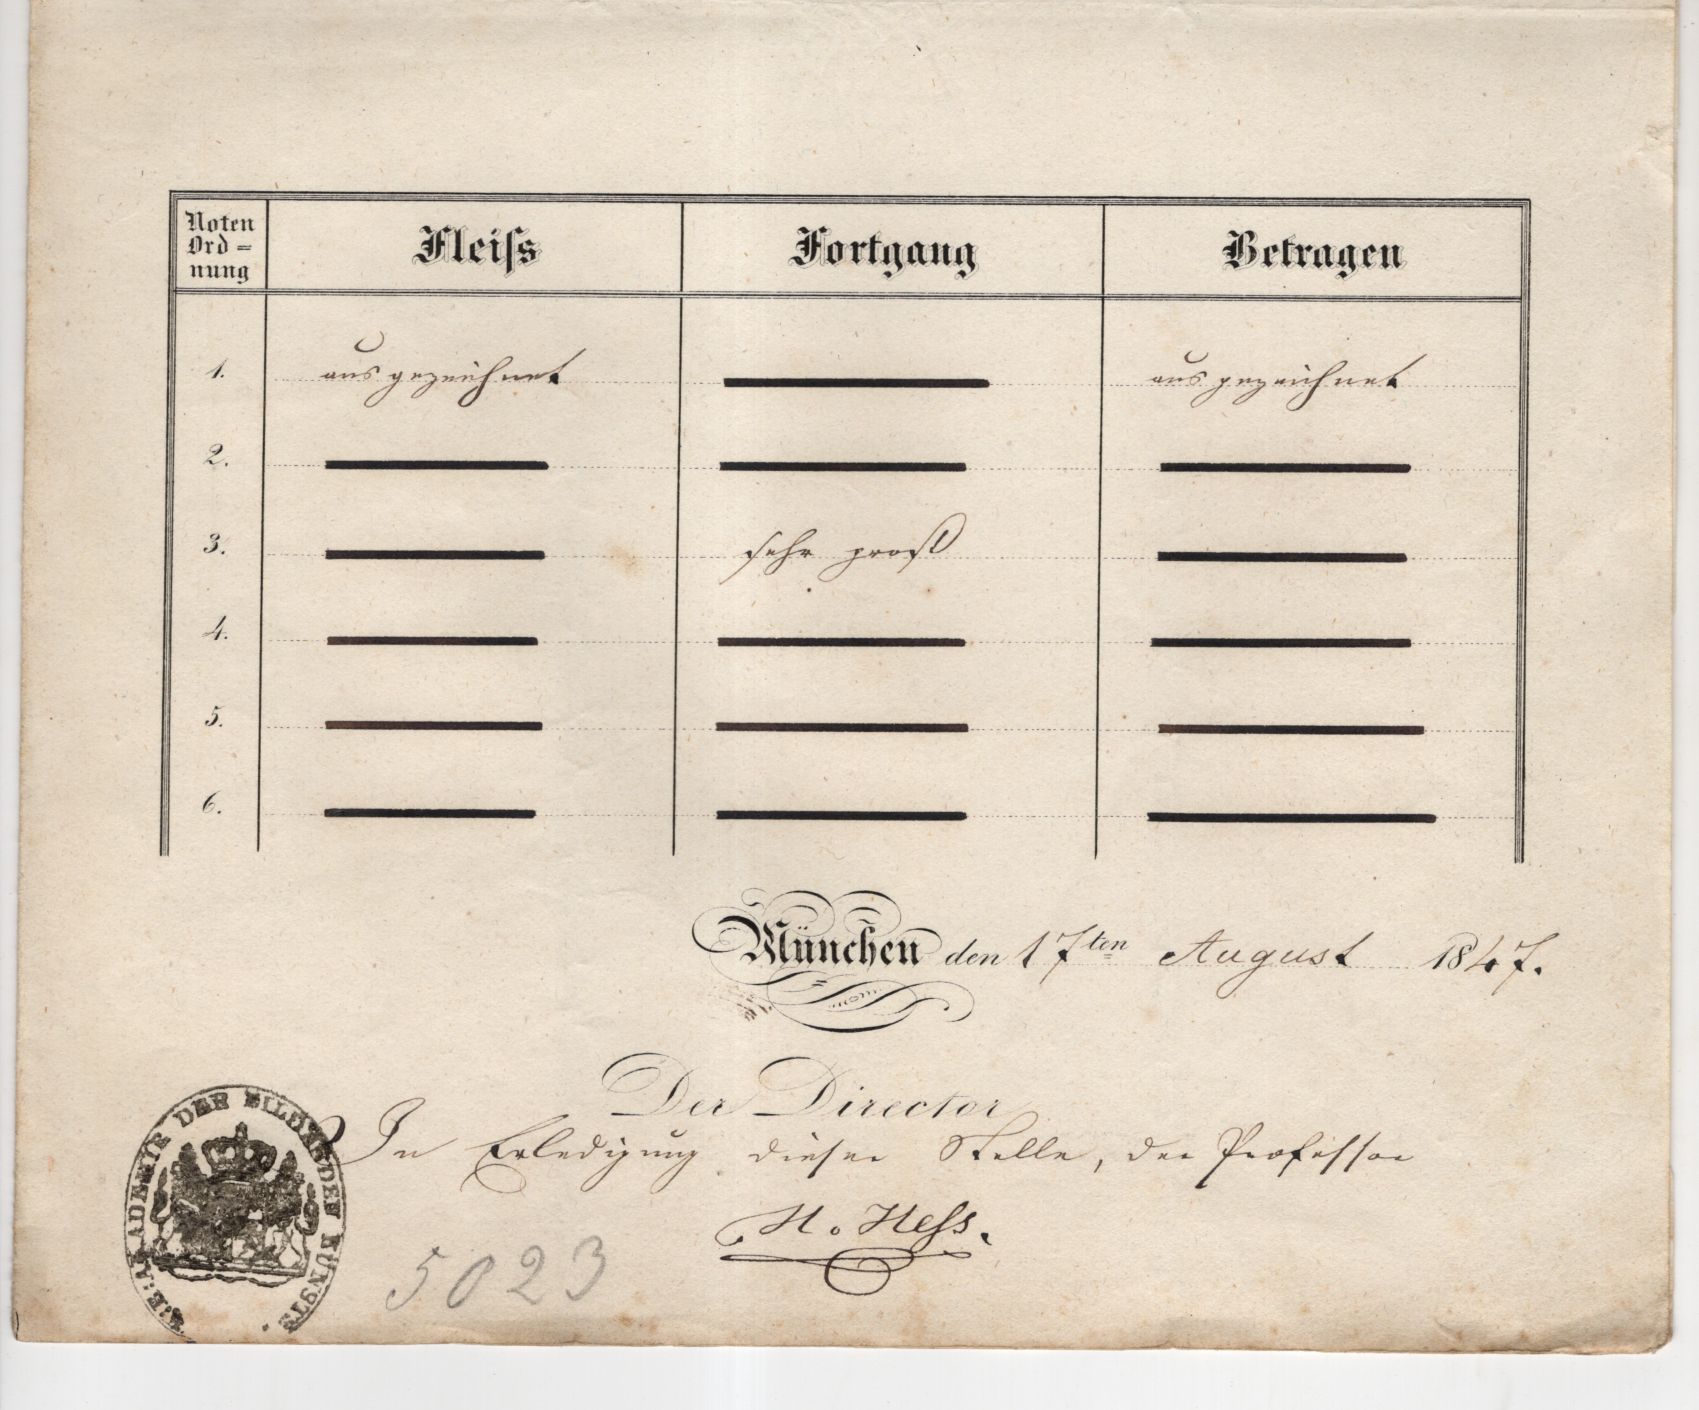 Noten Ord= nung Fleiſs Fortgang Betragen
1. ausgezeichnet ausgezeichnet
2.
3. sehr groß
4.
5.
6.
München den 17ten August 1847.
Der Director
In Erledigung dieser Stelle, der Professor
H. Heſs.
K:B: AKADEMIE DER BILDENDEN KÜNSTE.
5023